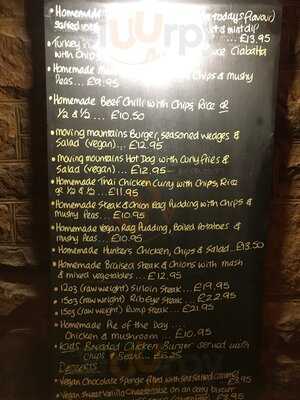 • Homemade today's flavour)
salted
Turkey
with Chips Ciabatta
... £13.95
• Homemade Chips & mushy
Peas... £9.95
• Homemade Beef Chilli with Chips, Rice or
1/2 & 1/2 .... £10.50
• moving mountains Burger, seasoned wedges &
Salad (vegan)... £12.95
• moving mountains Hot Dog with curly fries &
Salad (vegan) ... £12.95
• Homemade Thai Chicken Curry with Chips, Rice
or 1/2 & 1/2... £11.95
• Homemade Steak & Onion Rag Pudding with Chips &
mushy Peas... £10.95
• Homemade Vegan Rag Pudding, Boiled Potatoes &
mushy Peas... £10.95
• Homemade Hunters Chicken, Chips & Salad.. £13.50
• Homemade Braised Steak & Onions with mash
& mixed vegetables... £12.95
• 12oz (raw weight) Sirloin Steak ... £19.95
• 15oz (raw weight) Rib Eye Steak ... £22.95
• 15oz (raw weight) Rump Steak ... £21.95
• Homemade Pie of the Day ...
Chicken & mushroom ... £10.95
• Kids Breaded Chicken Burger served with
Chips & Beans... £6.25
Desserts
• Vegan Chocolate Sponge filled with salted caramel
• Vegan Sweet Vanilla Cheesecake on an oaty biscuit